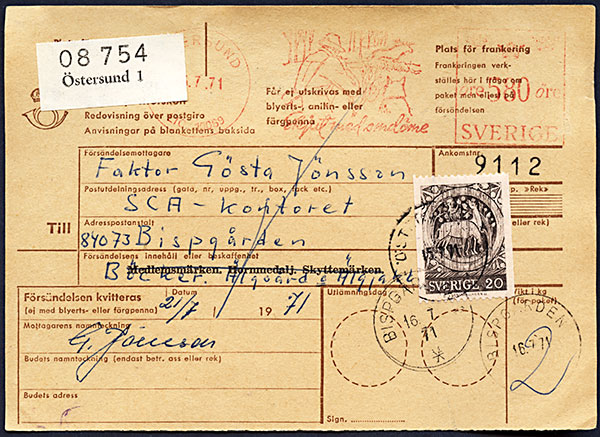 08 754
Östersund 1
7.71
Redovisning över postgiro
Anvisningar på blankettens baksida
Får ej utskrivas med
blyerts-, anilin- eller
färgpenna
Plats för frankering
Frankeringen verk-
ställes här i fråga om
paket men eljest på
försändelsen
öre 580 öre
SVERIGE
Försändelsemottagare
Faktor Gösta Jönsson
Ankomstnr
9112
Postutdelningsadress (gata, nr, uppg., tr., box, fack etc.)
SCA-kontoret
»Rek»
Till
Adresspostanstalt
84073 Bispgården
eller rek)
Försändelsens innehåll eller beskaffenhet
Medlemsmärken. Hornmedalj. Skyttemärken.
Böcker. Älgvård o
SVERIGE 20
Försändelsen kvitteras
(ej med blyerts- eller färgpenna)
Datum
21/7 1971
Utlämningsdag
Vikt i kg
(för paket)
Mottagarens namnteckning
G. Jönsson
BISPGÅRDEN
16.7.71
BISPGÅRDEN
16.7.71
2
Budets namnteckning (endast betr. ass eller rek)
Budets adress
Sign.